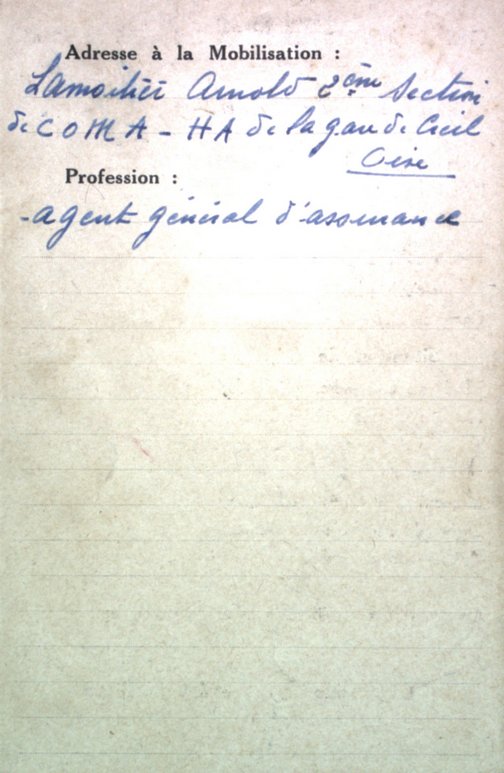 Adresse à la Mobilisation :
Lamoitié Arnold 2ème Section
de COMA - HA de la gare de Creil
Oise
Profession :
- agent général d'assurance